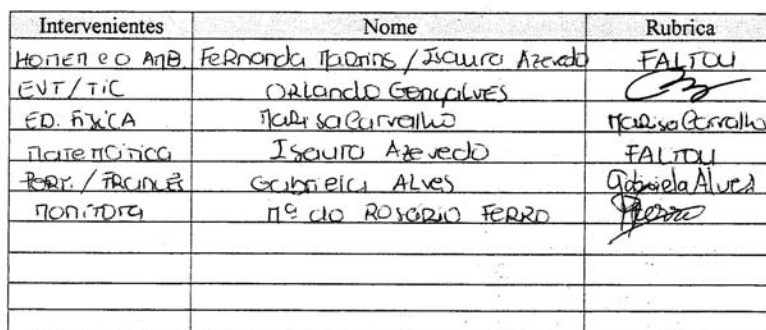 Intervenientes Nome Rubrica
Homem e o Amb. Fernanda Martins / Isaura Azevedo FALTOU
EVT / TIC Orlando Gonçalves
ED. FísicA Marisa Carvalho Marisa Carvalho
matemática Isaura Azevedo FALTOU
PORT. / Francês Gabriela Alves Gabriela Alves
monitora Mª do Rosário Ferro Ferro